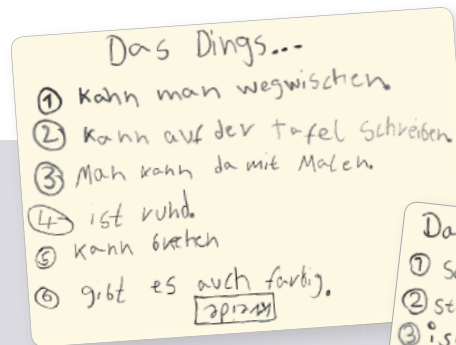 Das Dings...
① kann man wegwischen.
② kann auf der tafel schreiben.
③ Man kann da mit Malen.
④ ist rund.
⑤ kann brechen
⑥ gibt es auch farbig.
Kreide
Da
① S
② st
③ is